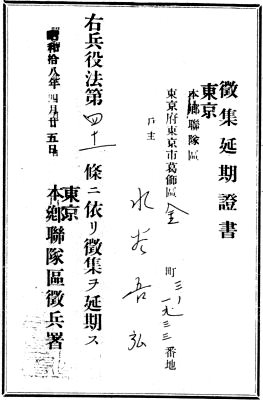 徴集延期證書
東京
本鄕聯隊區
東京府東京市葛飾區金町三ノ一九三三番地
戸主
水谷吾弘
右兵役法第四十一條ニ依リ徴集ヲ延期ス
昭和拾八年四月廿五日
東京
本鄕聯隊區徴兵署